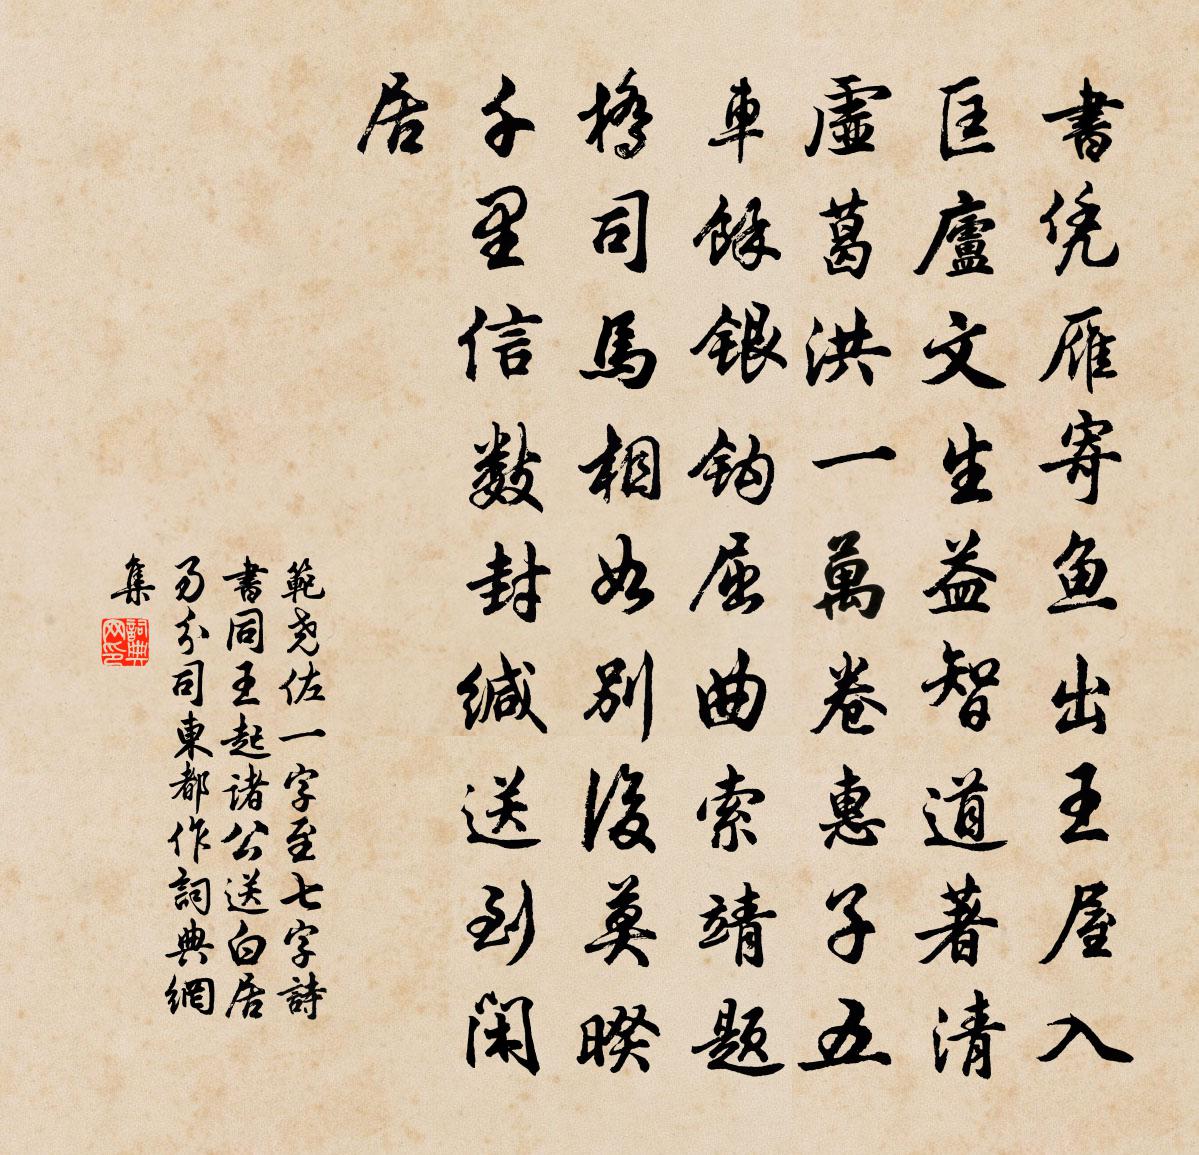 書凭雁寄魚出王屋入
匡廬文生益智道著清
虛葛洪一萬卷惠子五
車餘銀鈎屈曲索靖題
橋司馬相如別後莫睽
千里信數封緘送到閑
居
範堯佐一字至七字詩
書同王起諸公送白居
易分司東都作詞典網
集
詞典网印